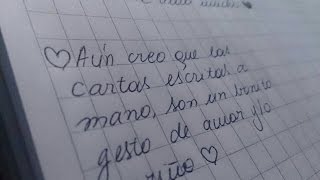 ♡ Aún creo que las
cartas escritas a
mano, son un bonito
gesto de amor y/o
cariño ♡